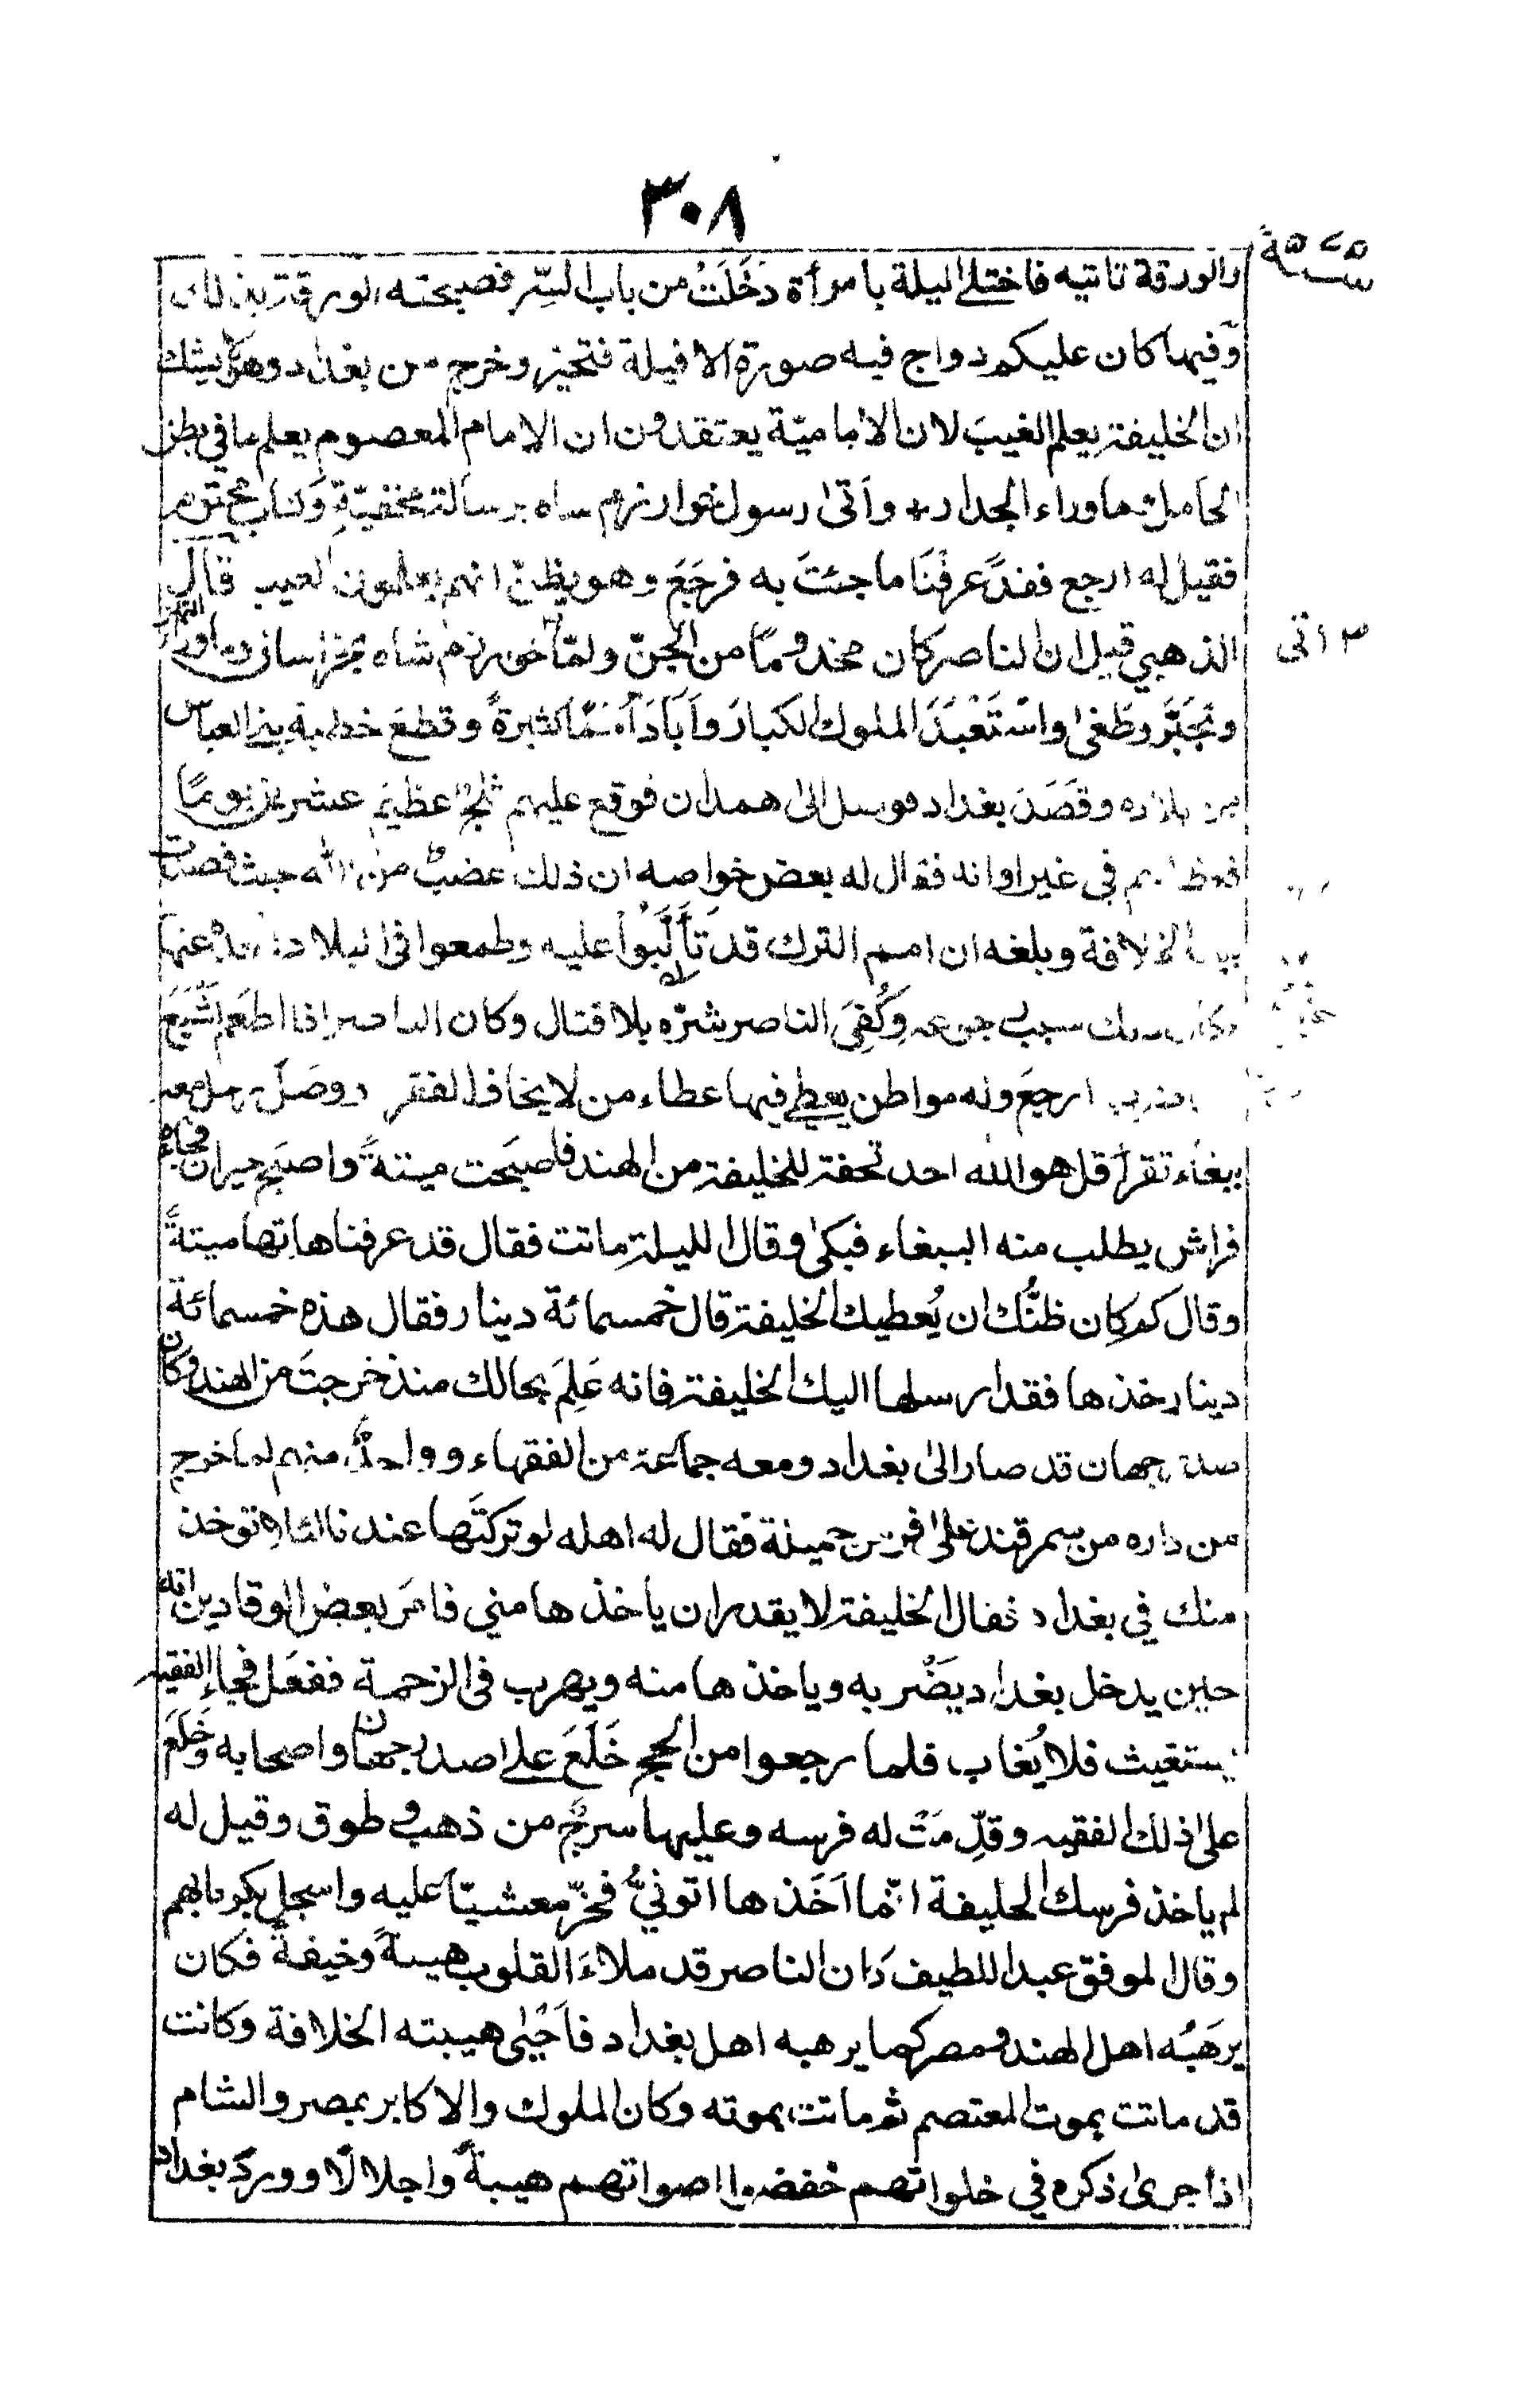 ٣٠٨
والورقة تاتيه فاختلى ليلة بامرأة دَخَلَتْ من باب السِّر فصبحته الورقة بذلك
وفيها كان عليكم دواج فيه صورة الافيلة فتحيز وخرج من بغداد وهو لا يشك
ان الخليفة يعلم الغيب لان الاماميّة يعتقدون ان الامام المعصوم يعلم ما في بطن
الحامل وما وراء الجدار واَتى رسول خوارزم ساه برسالة مخفيّةٍ وكتاب مختوم
فقيل له ارجع فقد عرفْنَا ما جئتَ به فرجَعَ وهو يظنّ انهم يعلمون الغيب قال
الذهبي قيل ان الناصر كان مخدومًا من الجنّ ولمّا خوارزم شاه بخراسان وماوراء النهر
اتى
وتجَبَّرَ وطَغٰى واسْتَعْبَدَ الملوك الكبارَ واَبَادَ اُمَمًا كثيرةً وقطع خطبة بني العباس
من بلاده وقَصَدَ بغداد فوصل الى همدان فوقع عليهم ثلجٌ عظيم عشرين يومًا
في غير اوانه فقال له بعض خواصه ان ذلك غضبٌ من الله حيث قصدت
بيت الخلافة وبلغه ان امم الترك قد تَأَلَّبُوْا عليه وطمعوا فى البلاد عنها
ذلك سبب رجوعه وكُفِيَ الناصر شرّه بلا قتال وكان الناصر اذا اطعَم اشْبَعَ
ارجعَ وله مواطن يعطي فيها عطاء من لا يخاف الفقر ووصَل رجل معه
ببغاء تقرأ قل هو الله احد تحفة للخليفة من الهند فاصبَحت ميتةً واصبَح حيران فجاءه
فراش يطلب منه الببغاء فبكى وقال الليلة ماتت فقال قد عرفناها تها ميتةً
وقال كم كان ظنُّك ان يُعطيك الخليفة قال خمسمائة دينار فقال هذه خمسمائة
دينار خذها فقد ارسلها اليك الخليفة فانه عَلِمَ بحالك منذ خرجتَ من الهند وكان
صدرجهان قد صار الى بغداد ومعه جماعة من الفقهاء وواحدٌ منهم لما خرج
من داره من سمرقند على فرس جميلة فقال له اهله لو تركتَها عندنا لئلا تؤخذ
منك في بغداد فقال الخليفة لا يقدر ان ياخذها مني فامَر بعض الوقادين انه
حين يدخل بغداد يَضْربه وياخذها منه ويهرب فى الزحمة ففعل فجاء الفقيه
يستغيث فلا يُغاب فلما رجعوا من الحج خَلَعَ على صدرجهان واصحابه وخَلَعَ
على ذلك الفقيه وقدِّمَتْ له فرسه وعليها سرجٌ من ذهب وطوق وقيل له
لم ياخذ فرسك الخليفة انّما اَخَذها اتونيٌّ فخرّ مغشيًّا عليه واسجل بكراماتهم
وقال الموفق عبد اللطيف كان الناصر قد ملاءَ القلوب هيبةً وخيفةً فكان
يرهَبُه اهل الهند ومصر كما يرهبه اهل بغداد فاَحْيٰى هيبته الخلافة وكانت
قد ماتت بموت المعتصم ثم ماتت بموته وكان الملوك والاكابر بمصر والشام
اذا جرى ذكره في خلواتهم خفضوا اصواتهم هيبةً واجلالًا وورد بغداد